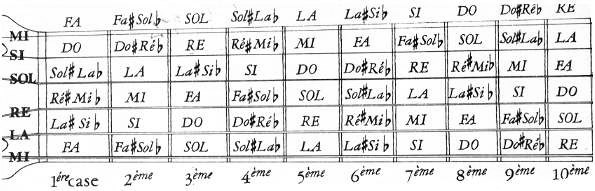 FA Fa♯Sol♭ SOL Sol♯La♭ LA La♯Si♭ SI DO Do♯Ré♭ RE
MI
DO Do♯Ré♭ RE Ré♯Mi♭ MI FA Fa♯Sol♭ SOL Sol♯La♭ LA
SI
Sol♯La♭ LA La♯Si♭ SI DO Do♯Ré♭ RE Ré♯Mi♭ MI FA
SOL
Ré♯Mi♭ MI FA Fa♯Sol♭ SOL Sol♯La♭ LA La♯Si♭ SI DO
RE
La♯Si♭ SI DO Do♯Ré♭ RE Ré♯Mi♭ MI FA Fa♯Sol♭ SOL
LA
FA Fa♯Sol♭ SOL Sol♯La♭ LA La♯Si♭ SI DO Do♯Ré♭ RE
MI
1ère case 2ème 3ème 4ème 5ème 6ème 7ème 8ème 9ème 10ème